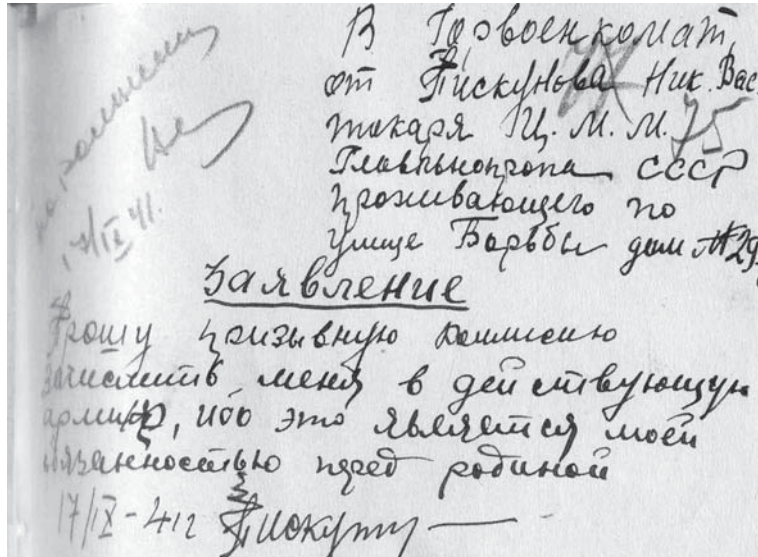 В Горвоенкомат,
от Пискунова Ник. Вас
токаря Ц. М. М. 75
Главльнопрома СССР
проживающего по
улице Борьбы дом №29
17/IX 41.
Заявление
Прошу призывную комиссию
зачислить меня в действующую
армию, ибо это является моей
обязанностью перед родиной
17/IX - 41г Пискун